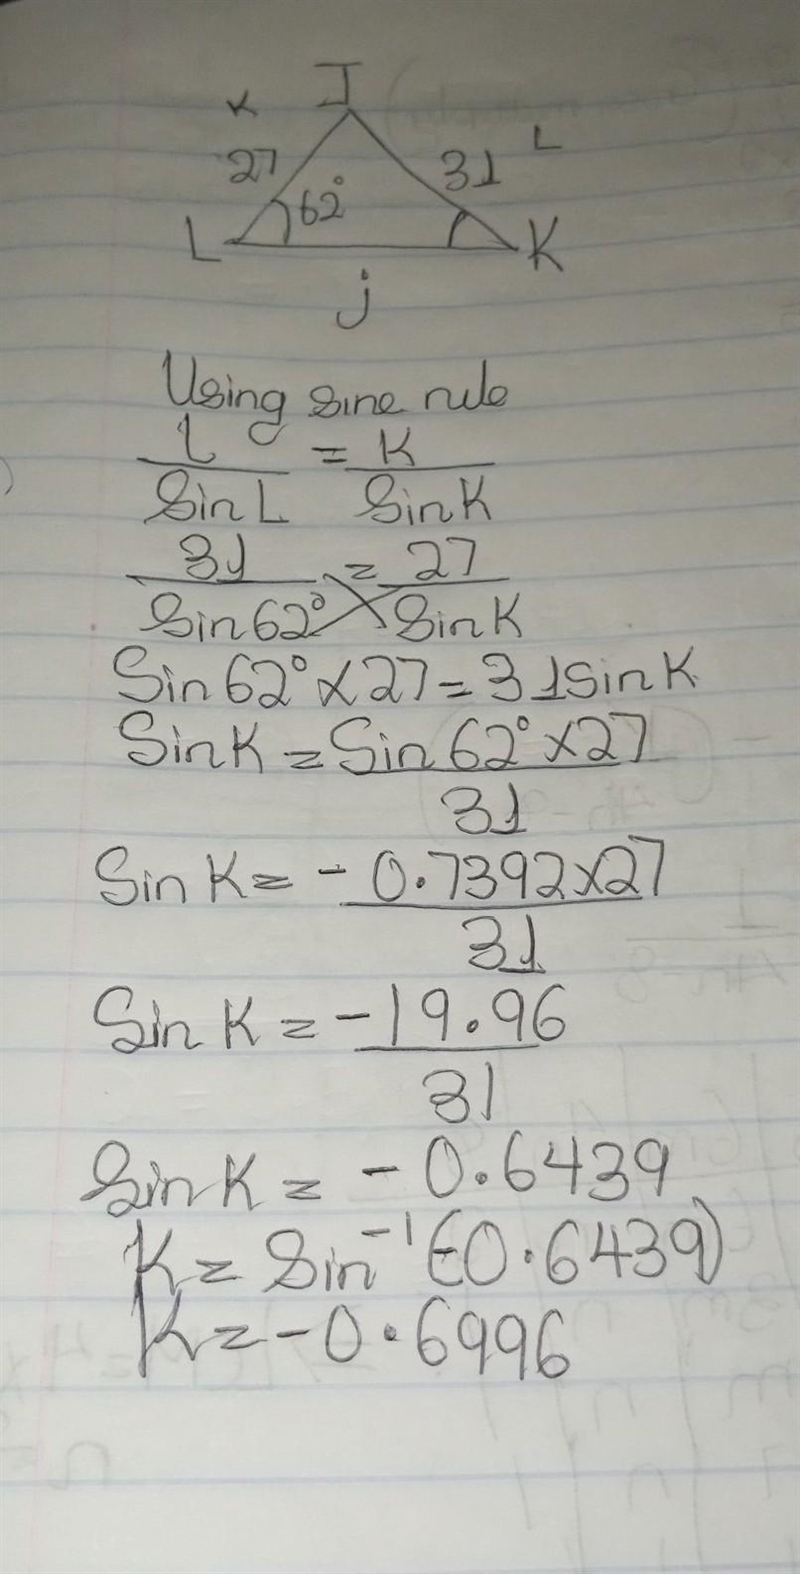 J
K
27
31
L
62°
L
K
j
Using sine rule
l/Sin L = K/Sin K
31/Sin 62° = 27/Sin K
Sin 62° × 27 = 31 sin K
Sin K = Sin 62° × 27/31
Sin K = - 0.7392 × 27/31
Sin K = - 19.96/31
Sin K = - 0.6439
K = Sin⁻¹ (-0.6439)
K = - 0.6996